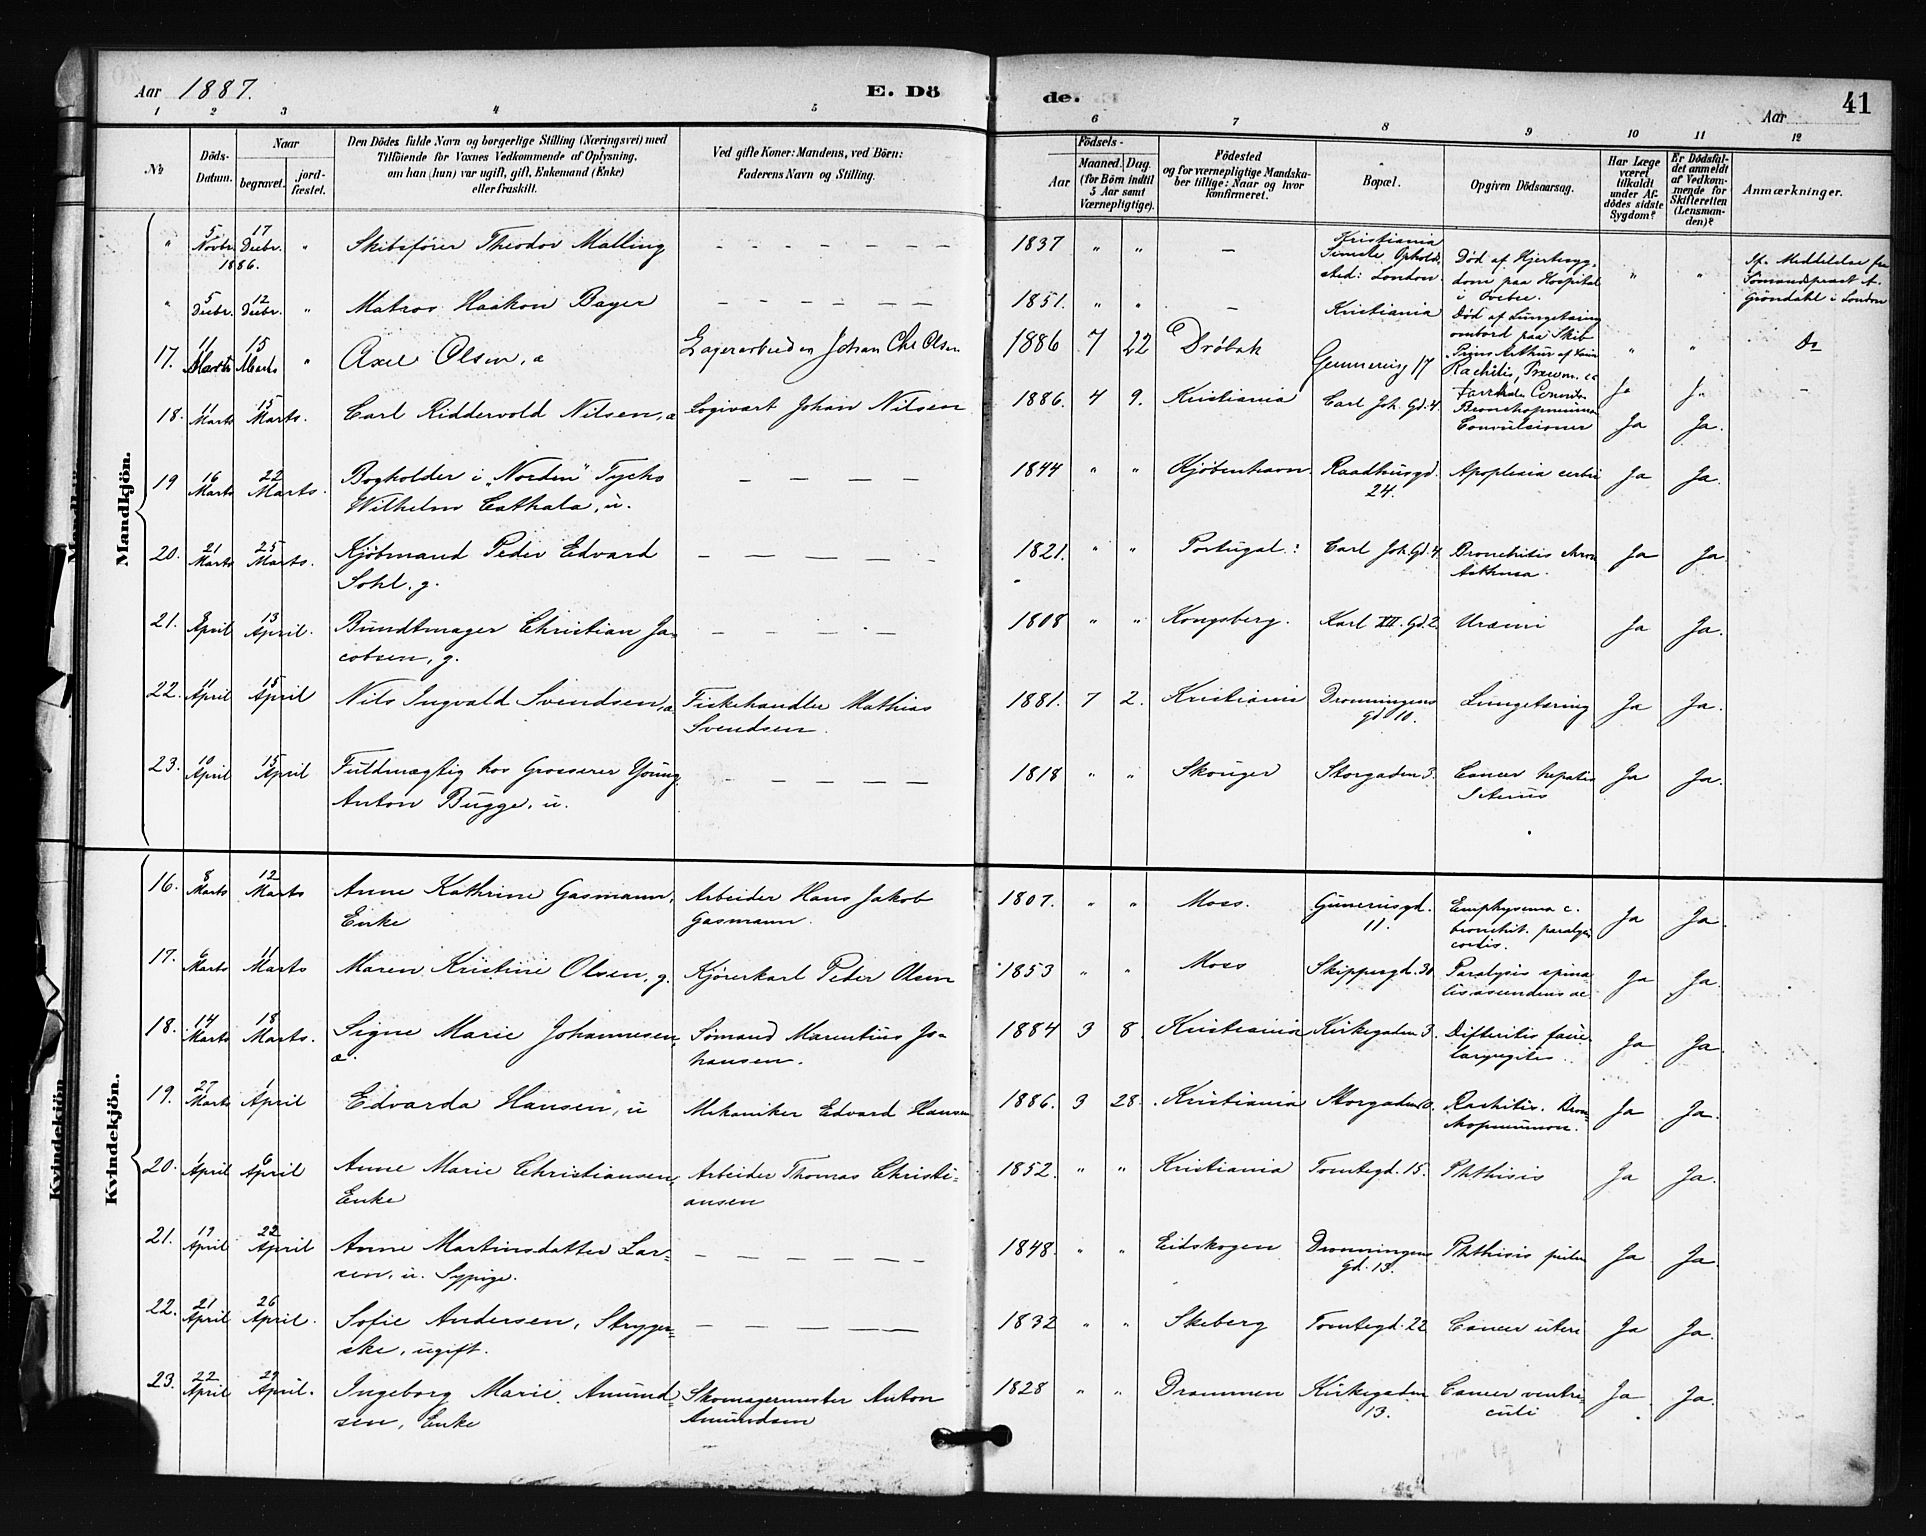 Aar 1887. E. Dö de. Aar 41
1 2 3 4 5 6 7 8 9 10 11 12
№ Döds-Datum. Naar begravet. jord-fæstet. Den Dödes fulde Navn og borgerlige Stilling (Næringsvei) med Tilföiende for Voxnes Vedkommende af Oplysning, om han (hun) var ugift, gift, Enkemand (Enke) eller fraskilt. Ved gifte Koner: Mandens, ved Börn: Faderens Navn og Stilling. Födsels- Aar Maaned. Dag. (for Börn indtil 5 Aar samt Værnepligtige). Födested og for værnepligtige Mandskaber tillige: Naar og hvor konfirmeret. Bopæl. Opgiven Dödsaarsag. Har Læge været tilkaldt under Afdödes sidste Sygdom? Er Dödsfaldet anmeldt af Vedkommende for Skifteretten (Lensmanden)? Anmærkninger.
Mandkjön.
" 5 Novbr. 1886. 17 Decbr. " Skibsfører Theodor Malling – – – – – – 1837 " " – Kristiania Sidste Opholdssted: London Død af Hjertesygdom paa Hospital " " Meddelelse fra Sömandspræst Gröndahl i London
" 5 Decbr. 12 Decbr. " Matros Haakon Bayer – – – – – – 1851. " " – Kristiania Død af Lungetæring ombord paa Skib Prins Arthur " " Do
17. 11 Marts 15 Marts " Axel Olsen, æ Lagerarbeider Johan Chr. Olsen 1886 7 22 Drøbak Gunnerusg 17 Rachitis, Ja Ja –
18. 11 Marts 15 Marts. Carl Riddervold Nilsen, æ Logivært Johan Nilsen 1886. 4 9. Kristiania Carl Joh. Gd. 4 Bronchopneumoni Convulsioner Ja Ja.
19 16 Marts 22 Marts. Bogholder i "Norden" Tycho Wilhelm Cathala, u. – – – – 1844 " " Kjøbenhavn Raadhusgd. 24. Apoplexia cerebri Ja Ja.
20. 21 Marts 25 Marts. Kjøbmand Peder Edvard Sohl. g. – – – – – 1821. " " Portugal. Carl Joh. Gd. 4 Bronchitis chron Asthma. Ja Ja.
21. April 13 April. Bundtmager Christian Jacobsen, g. – – – – 1808 " " Kongsberg. Karl XII. Gd. 2. Uræmi Ja Ja.
22. 11 April 15 April Nils Ingvald Svendsen, æ Fiskehandler Mathias Svendsen. 1881. 7 2. Kristiania Dronningens gd 10. Lungetæring Ja Ja.
23. 10 April 15 April Fuldmægtig hos Grosserer Young. Anton Bugge, u. – – – – – 1818 " " Skouger Storgaden 3. Cancer hepatis Icterus Ja Ja.
Kvindekjön.
16. 8 Marts 12 Marts Anne Kathrine Gasmann, Enke Arbeider Hans Jakob Gasmann. 1807. " " Moss. Gunerusgd. 11. Emphysema c. bronchit. paralysis cordis. Ja Ja.
17. 6 Marts 11 Marts Maren Kristine Olsen, g. Kjørerkarl Peder Olsen 1853 " " Moss Skippergd. 30 Paralysis spinalis ascendens ac Ja Ja.
18. 14 Marts 18 Marts. Signe Marie Johannesen. æ. Sömand Marentius Johansen. 1884 3 8. Kristiania Kirkegaden 3. Difteritis laryngitis Ja Ja.
19. 27 Marts 1 April Edvarda Hansen, u Mekaniker Edvard Hansen 1886. 3 28. Kristiania Storgaden Rachitis. Bronchopneumon. Ja Ja.
20. 1 April 6 April Anne Marie Christiansen, Enke Arbeider Thomas Christiansen 1852. " " Kristiania Tomtegd. 15. Phthisis Ja Ja.
21. 17 April 22 April Anne Martinsdatter Larsen, u. Sypige. – – – – – – 1848. " " Eidskogen Dronningens Gd. 13. Phthisis pulm Ja Ja.
22. 21 April 26 April. Sofie Andersen, Strygerske, ugift. – – – – – 1832 " " Skeberg Tomtegd. 22 Cancer uteri Ja Ja.
23. 22 April 29 April. Ingeborg Marie Amundsen, Enke Skomagermester Anton Amundsen 1828 " " Drammen Kirkegaden 13. Cancer ventriculi Ja Ja.